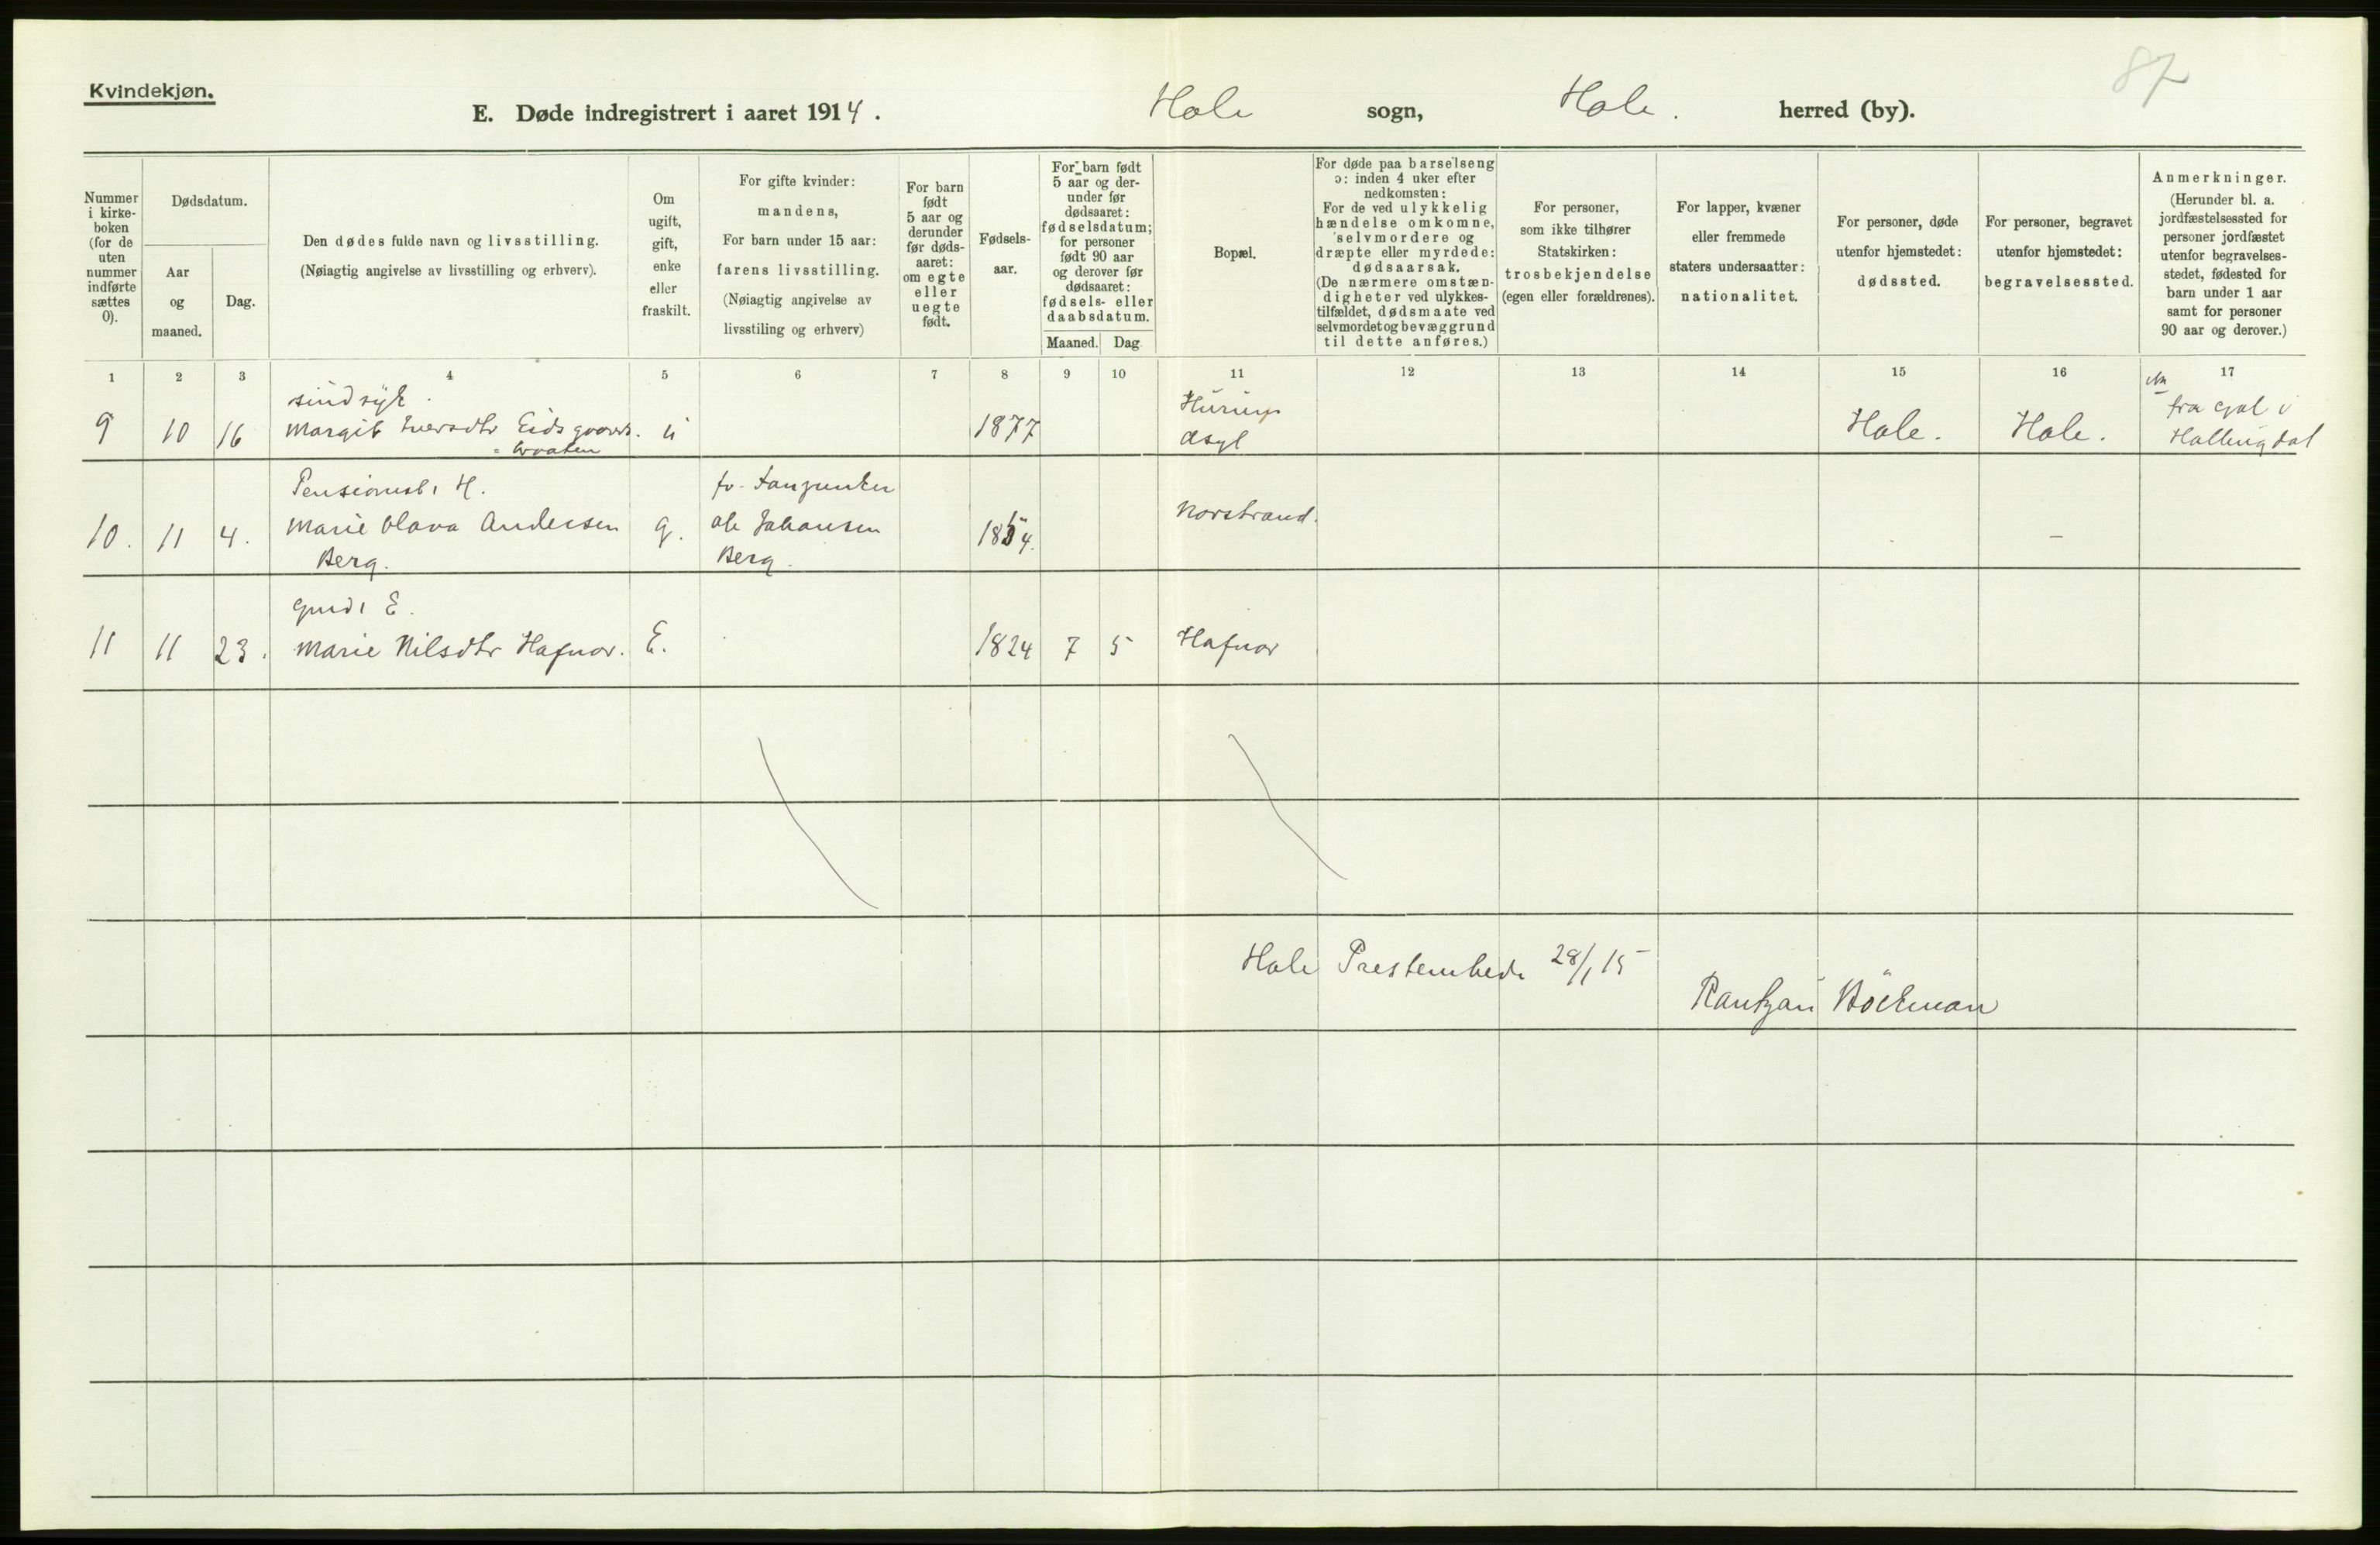 87
Kvindekjøn.
E. Døde indregistrert i aaret 1914. Hole sogn, Hole. herred (by).
Nummer i kirkeboken (for de uten nummer indførte sættes 0).
Dødsdatum.
Aar og maaned.
Dag.
Den dødes fulde navn og livsstilling.
(Nøiagtig angivelse av livsstilling og erhverv).
Om ugift, gift, enke eller fraskilt.
For gifte kvinder:
mandens,
For barn under 15 aar:
farens livsstilling.
(Nøiagtig angivelse av
livsstiling og erhverv)
For barn født 5 aar og derunder før dødsaaret: om egte eller uegte født.
Fødselsaar.
For barn født 5 aar og derunder før dødsaaret: fødselsdatum; for personer født 90 aar og derover før dødsaaret: fødsels- eller daabsdatum.
Maaned. Dag
Bopæl.
For døde paa barselseng
ɔ: inden 4 uker efter
nedkomsten:
For de ved ulykkelig
hændelse omkomne,
selvmordere og
dræpte eller myrdede:
dødsaarsak.
(De nærmere omstæn-
digheter ved ulykkes-
tilfældet, dødsmaate ved
selvmordet og bevæggrund
til dette anføres.)
For personer,
som ikke tilhører
Statskirken:
trosbekjendelse
(egen eller forældrenes).
For lapper, kvæner
eller fremmede
staters undersaatter:
nationalitet.
For personer, døde
utenfor hjemstedet:
dødssted.
For personer, begravet
utenfor hjemstedet:
begravelsessted.
Anmerkninger.
(Herunder bl. a.
jordfæstelsessted for
personer jordfæstet
utenfor begravelses-
stedet, fødested for
barn under 1 aar
samt for personer
90 aar og derover.)
1 2 3 4 5 6 7 8 9 10 11 12 13 14 15 16 17
sindsyk.
9 10 16 Margit Iversdtr u 1877 asyl Hole. Hole. fra Gol i
Hallingdal
H.
10. 11 4. Marie Olava Andersen g. Ole Johansen 1854. Norstrand. –
Berg. Berg.
Gmds E.
11 11 23. Marie Nilsdtr Hafnor. E. 1824 7 5 Hafnor
Hole Prestembede 28/1 15
Rantzau Böckman